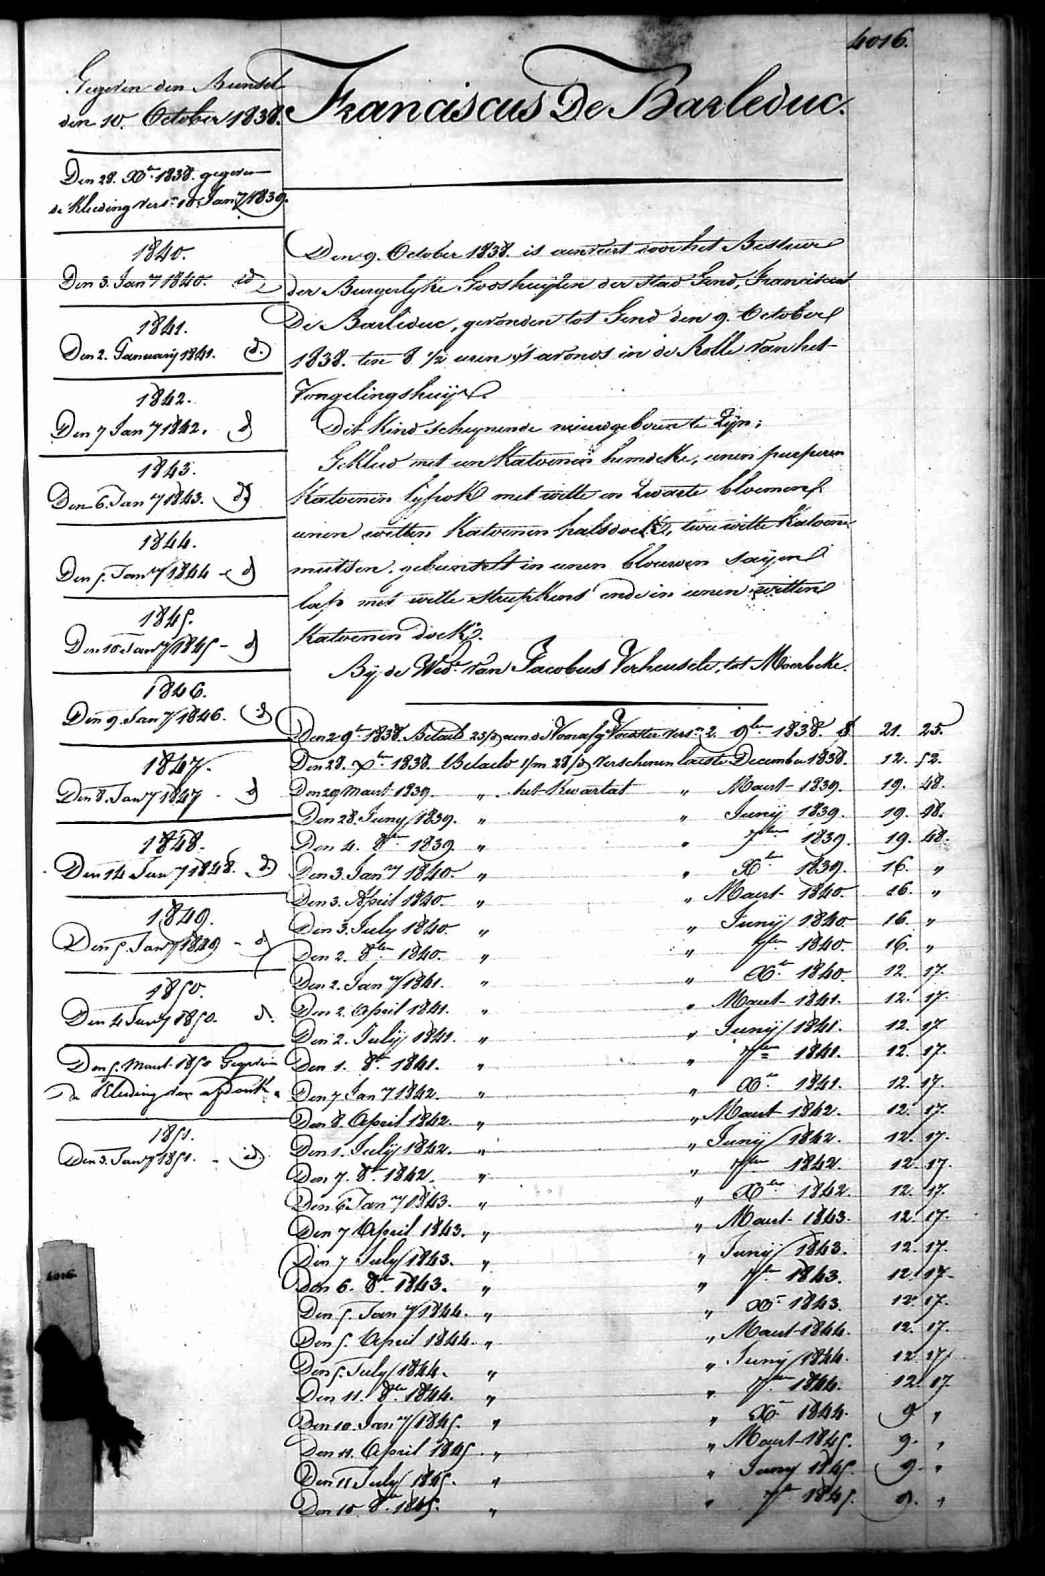 4016.
Franciscus De Barleduc.
Gegeven den Bundel
den 10. October 1838.
Den 28. Xbre 1838. gegeven
de Kleeding vers. 10 Jany 1839.
1840.
Den 3. Jany 1840. id
1841.
Den 2. January 1841. id.
1842.
Den 7 Jany 1842. id
1843.
Den 6. Jany 1843. id
1844.
Den 5. Jany 1844 - id
1845.
Den 10 Jany 1845 - id
1846.
Den 9. Jany 1846. id
1847.
Den 8. Jany 1847 - id
1848.
Den 14 Jany 1848. id
1849.
Den 5. Jany 1849 - id
1850.
Den 4 Jany 1850. id.
Den 5. Maert 1850 Gegeven
de Kleeding
1851.
Den 3. Jany 1851. - id
4016
Den 9. October 1838. is aenveert door het Bestuur
der Burgerlyke Godshuijzen der stad Gend, Franciscus
De Barleduc, gevonden tot Gend den 9. October
1838. ten 8 1/2 uren 's avonds in de Rolle van het
Vondelingshuijs.
Dit Kind schynende nieuwgeboren te Zijn;
Gekleed met een Katoenen hemdeke, eenen purperen
Katoenen lyfrok met witte en Zwarte bloemen,
eenen witten Katoenen halsdoek, twee witte Katoene
mutsen, gebundelt in eenen blouwen saijen
lap met witte streepkens ende in eenen witten
Katoenen doek.
Bij de Wede van Jacobus Verheusele, tot Moerbeke.
Den 2 9bre 1838. Betaelt 23/d aen de Voorster vers. 2. 9bre 1838. f 21. 25.
Den 28. Xbre 1838. Betaeld 28/d verschenen laeste December 1838. 12. 52.
Den 29 Maert 1839. " het Kwartael " Maert 1839. 19. 48.
Den 28. Juny 1839. " " Junij 1839. 19. 48.
Den 4. 8bre 1839 " " 7bre 1839. 19. 48.
Den 3. Jany 1840 " " Xbre 1839. 16. "
Den 3. April 1840 " " Maert 1840. 16. "
Den 3. July 1840 " " Junij 1840 16. "
Den 2. 8bre 1840. " " 7bre 1840. 16. "
Den 2. Jany 1841. " " Xbre 1840. 12. 17.
Den 2. April 1841. " " Maert 1841. 12. 17.
Den 2. Julij 1841. " " Junij 1841. 12. 17
Den 1. 8bre 1841. " " 7bre 1841. 12. 17.
Den 7 Jany 1842. " " Xbre 1841. 12. 17.
Den 8. April 1842. " " Maert 1842. 12. 17.
Den 1. Julij 1842. " " Junij 1842. 12. 17.
Den 7. 8bre 1842. " " 7bre 1842. 12. 17.
Den 6 Jany 1843. " " Xbre 1842. 12. 17.
Den 7 April 1843. " " Maert 1843. 12. 17.
Den 7 July 1843. " " Junij 1843. 12. 17.
Den 6. 8bre 1843. " " 7bre 1843. 12. 17.
Den 5. Jany 1844. " " Xbre 1843. 12. 17.
Den 5. April 1844. " " Maert 1844. 12. 17.
Den 5. July 1844. " " Juny 1844. 12. 17
Den 11. 8bre 1844. " " 7bre 1844. 12. 17
Den 10. Jany 1845. " " Xbre 1844. 9. "
Den 11. April 1845. " " Maert 1845. 9. "
Den 11 July 1845. " " Juny 1845. 9. "
Den 10. 8bre 1845. " " 7bre 1845. 9. "